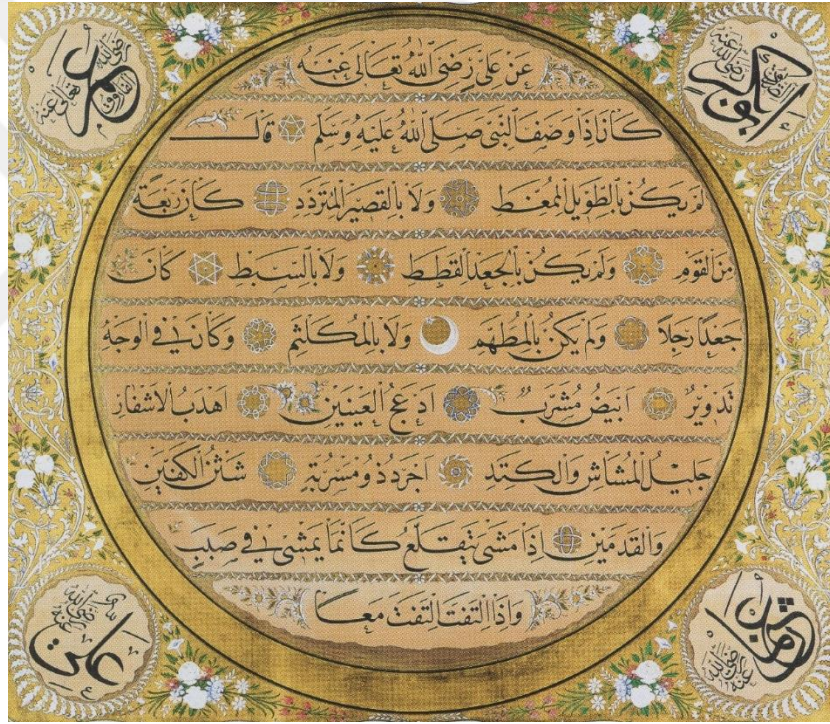 أبو بكر رضي الله عنه
عمر الفاروق رضي الله تعالى عنه
عَنْ عَلِىٍّ رَضِىَ اللهُ تَعَالٰى عَنْهُ
كَانَ اِذَا وَصَفَ النَّبِىَّ صَلَّى اللهُ عَلَيْهِ وَسَلَّمَ قَالَ
لَمْ يَكُنْ بِالطَّوِيلِ الْمُمَغَّطِ وَلَا بِالْقَصِيرِ الْمُتَرَدِّدِ كَانَ رَبْعَةً
مِنَ الْقَوْمِ وَلَمْ يَكُنْ بِالْجَعْدِ الْقَطَطِ وَلَا بِالسَّبِطِ كَانَ
جَعْدًا رَجِلًا وَلَمْ يَكُنْ بِالْمُطَهَّمِ وَلَا بِالْمُكَلْثَمِ وَكَانَ فِى الْوَجْهِ
تَدْوِيرٌ اَبْيَضُ مُشْرَبٌ اَدْعَجُ الْعَيْنَيْنِ اَهْدَبُ الْاَشْفَارِ
جَلِيلُ الْمُشَاشِ وَالْكَتَدِ اَجْرَدُ ذُو مَسْرُبَةٍ شَثْنُ الْكَفَّيْنِ
وَالْقَدَمَيْنِ اِذَا مَشٰى يَتَقَلَّعُ كَاَنَّمَا يَمْشِى فِى صَبَبٍ
وَاِذَا الْتَفَتَ الْتَفَتَ مَعًا
عثمان رضي الله عنه
علي رضي الله عنه